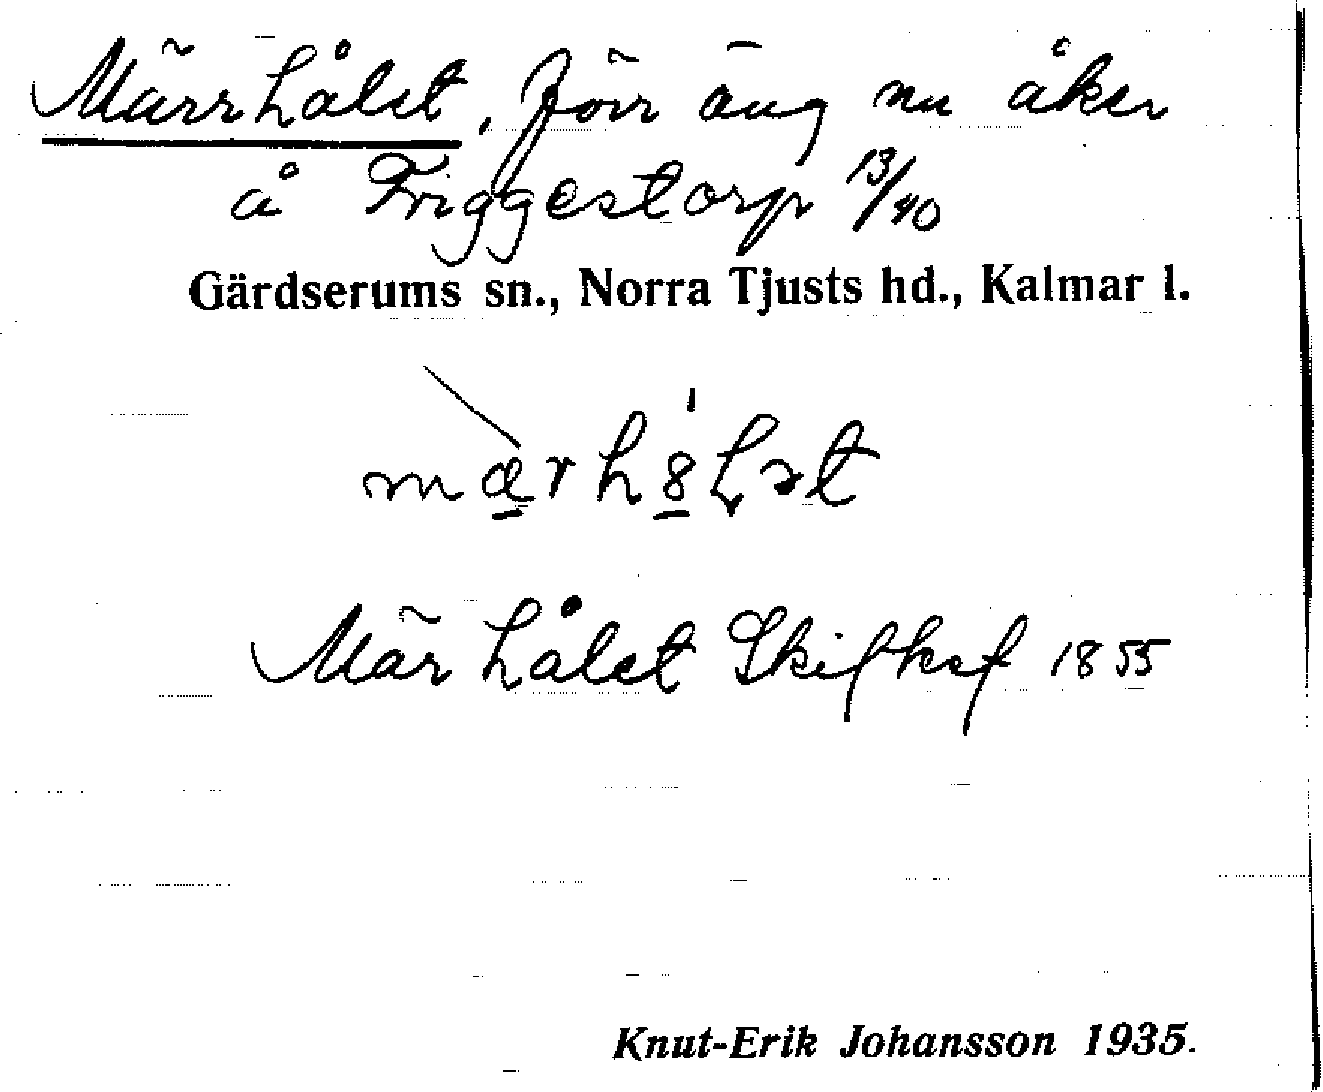 Märrhålet, förr äng nu åker
å Friggestorp 13/40
Gärdserums sn., Norra Tjusts hd., Kalmar l.
Mär hålet Skifksf 1855
Knut-Erik Johansson 1935.